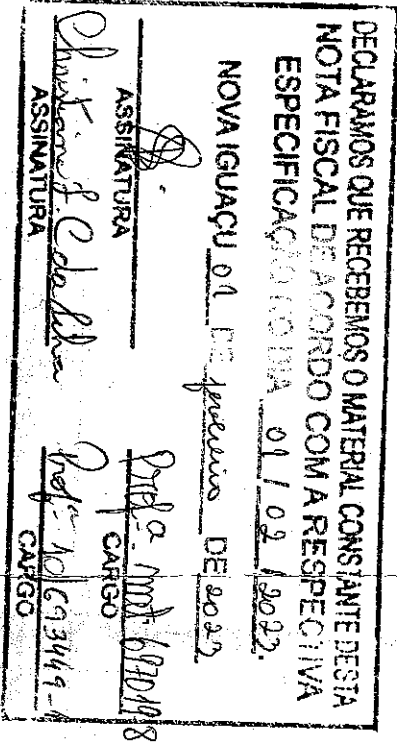 DECLARAMOS QUE RECEBEMOS O MATERIAL CONSTANTE DESTA
NOTA FISCAL DE ACORDO COM A RESPECTIVA
ESPECIFICAÇÃO NO DIA 01 / 02 / 2022.
NOVA IGUAÇU 01 DE fevereiro DE 2022
ASSINATURA
Profª. mat: CARGO
Christiane S. C da Silva Profª
ASSINATURA CARGO